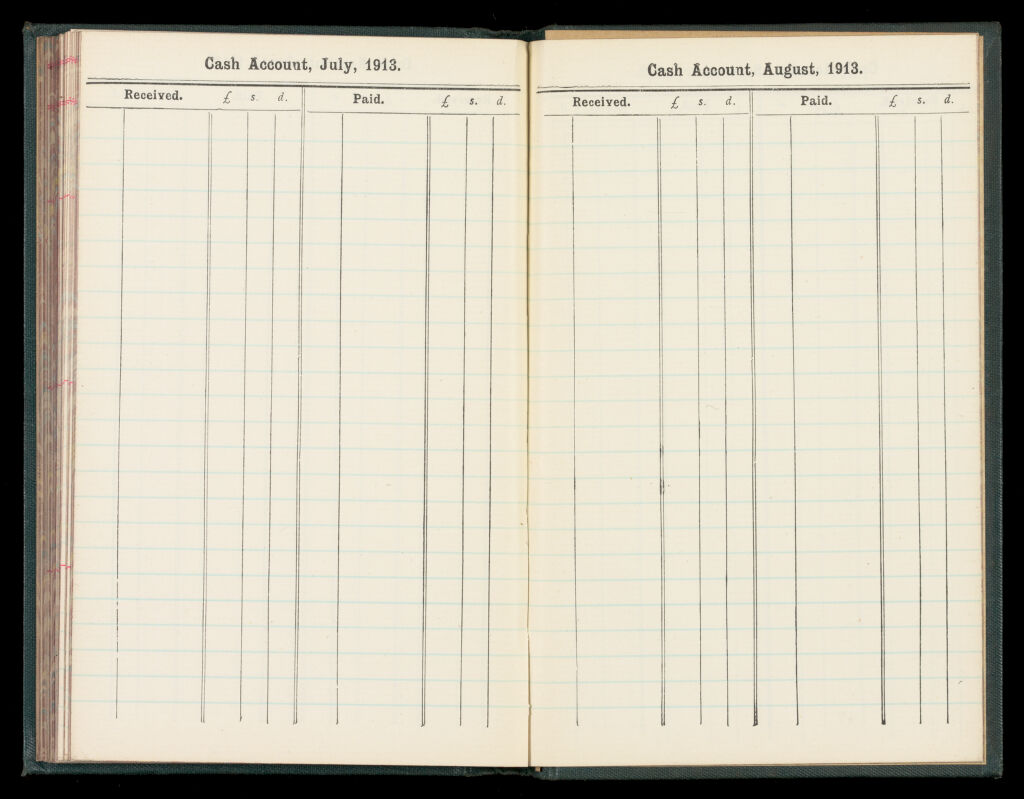 Cash Account, July, 1913.
Received. £ s. d. Paid. £ s. d.
Cash Account, August, 1913.
Received. £ s. d. Paid. £ s. d.